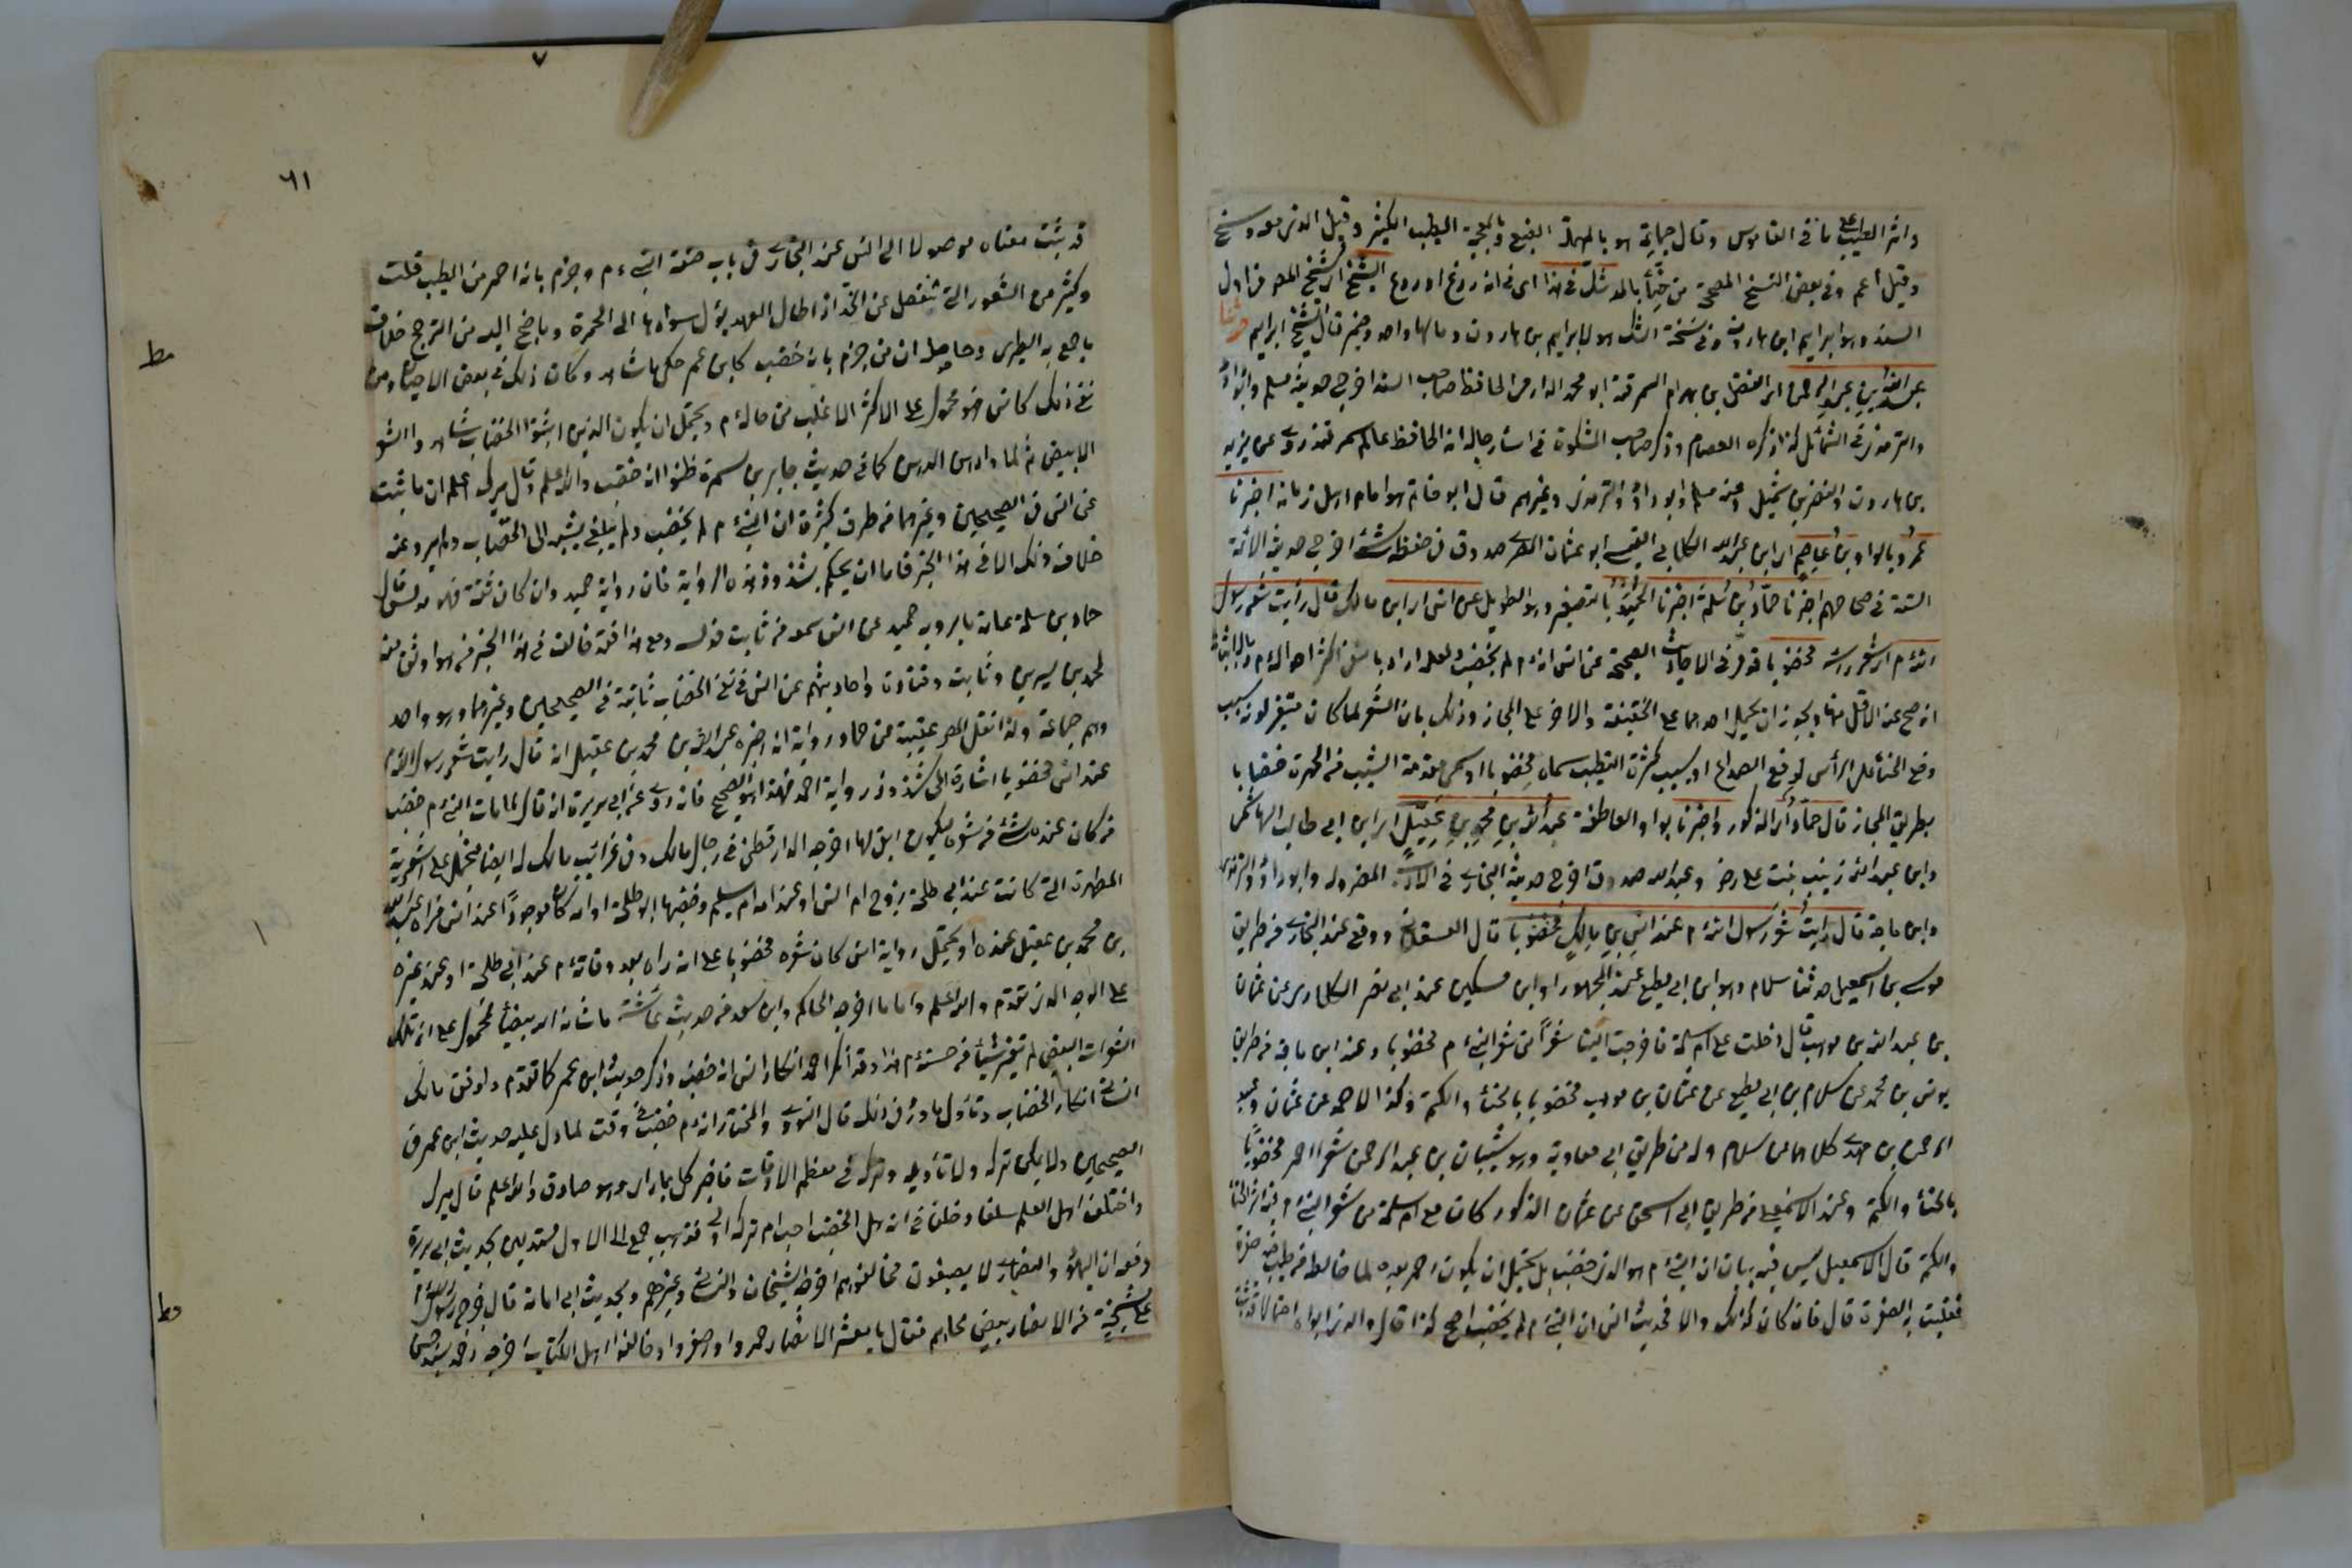 واثر الطيب على ما في القاموس وقال جماعة هو بالمهملة الصبغ وبالمعجمة الطيب الكثير وقيل الذي معه وسخ
وقيل اعم وفي بعض النسخ المصححة من حناء بالمد شك في هذا اى في انه ردغ او ردع الشيخ اى شيخ المص في اول
السند وهو ابراهيم ابن هارون وفي نسخة الشك هو لابراهيم بن هارون ومالهما واحد قال الشيخ ابراهيم حدثنا
عبد الله بن عبد الرحمن اى ابن الفضل بن بهرام السمرقندي ابو محمد الدارمي الحافظ صاحب المسند اخرج حديثه مسلم وابو داود
والترمذي في الشمائل كذا ذكره العصام وذكر صاحب المشكوة في اسماء رجاله انه الحافظ عالم سمرقند روى عن يزيد
بن هارون والنضر بن شميل وعنه مسلم وابو داود والترمذي وغيرهم قال ابو حاتم هو امام اهل زمانه اخبرنا
عمرو بالواو بن عاصم اى ابن عبيد الله الكلابي القيسي ابو عثمان البصري صدوق في حفظه شئ اخرج حديثه الائمة
الستة في صحاحهم اخبرنا حماد بن سلمة اخبرنا حميد بالتصغير وهو الطويل عن انس اى ابن مالك قال رأيت شعر رسول
الله م اى شعر رأسه مخضوبا قد مر في الاحاديث الصحيحة عن انس انه م لم يخضب ولعله اراد بالنفي اكثر احواله م وبالاثبات
ان صح عنه الاقل منها ويجوز ان يحمل احدهما على الحقيقة والاخر على المجاز وذلك بان الشعر لما كان متغيرا لونه بسبب
وضع الحناء على الرأس لدفع الصداع او بسبب كثرة التطيب سماه مخضوبا او سمى مقدمة الشيب من الحمرة خضابا
بطريق المجاز قال حماد اى المذكور واخبرنا بواو العاطفة عبد الله بن محمد بن عقيل اى ابن ابي طالب الهاشمي
وابن عبد الله زينب بنت علي رضه وعبد الله صدوق اخرج حديثه البخاري في الادب المفرد له وابو داود والترمذي
وابن ماجة قال رأيت شعر رسول الله م عند انس بن مالك مخضوبا قال العسقلاني ووقع عند البخاري من طريق
موسى بن اسمعيل حدثنا سلام وهو ابن ابي مطيع عند الجمهور او ابن مسكين عند ابي نصر الكلابادي عن عثمان
بن عبد الله بن موهب قال دخلت على ام سلمة فاخرجت الينا شعرا من شعر النبي م مخضوبا وعند ابن ماجه من طريق
يونس بن محمد عن سلام بن ابي مطيع عن عثمان بن موهب مخضوبا بالحناء والكتم وكذا لاحمد عن عثمان وعبد
الرحمن بن مهدي كلاهما عن سلام وله من طريق ابي معاوية وهو شيبان بن عبد الرحمن شعرا احمر مخضوبا
بالحناء والكتم وعند الاسمعيلي من طريق ابي اسحق عن عثمان المذكور كان مع ام سلمة من شعر النبي م فيه اثر الحناء
والكتم قال الاسمعيلي ليس فيه بيان ان النبي م هو الذي خضب بل يحتمل ان يكون احمر بعده لما خالطه من طيب فيه صفرة
فغلبت به الصفرة قال فان كان كذلك والا فحديث انس ان النبي م لم يخضب اصح كذا قال والذي ابداه احتمالا
٦١
قد ثبت معناه موصولا الى انس عند البخاري في باب صفة النبي م وجزم بانه احمر من الطيب قلت
وكثير من الشعور التي تنفصل عن الجسد اذا طال العهد يؤل سوادها الى الحمرة وما جنح اليه من الترجيح خلاف
ما جمع به الطبري وحاصله ان من جزم بانه خضب كابن عمر حكى ما شاهد وكان ذلك في بعض الاحيان ومن
نفى ذلك كانس فهو محمول على الاكثر الاغلب من حاله م ويحتمل ان يكون الذين اثبتوا الخضاب شاهدوا الشعر
الابيض ثم لما واراه الدهن كما في حديث جابر بن سمرة ظنوا انه خضب والله اعلم وقال ميرك اعلم ان ما ثبت
عن انس في الصحيحين وغيرهما من طرق كثيرة ان النبي م لم يخضب ولم يبلغ شيبه الى الخضاب ولم يرو عنه
خلاف ذلك الا في هذا الخبر فاما ان يحكم بشذوذ هذه الرواية فان رواية حميد وان كان ثقة فهو مدلس قال
حماد بن سلمة عامة ما يرويه حميد عن انس سمعه من ثابت فدلسه ومع هذا فقد خالف في هذا الخبر من هو اوثق منه
لمحمد بن سيرين وثابت وقتادة واحاديثهم عن انس في نفى الخضاب ثابتة في الصحيحين وغيرهما وهو واحد
وهم جماعة ولذا نقل المص عقيبه عن حماد رواية انه اخبره عبد الله بن محمد بن عقيل انه قال رأيت شعر رسول الله م
عند انس مخضوبا اشارة الى شذوذ رواية احمد فهذا هو الصحيح فانه روى عن ابي هريرة انه قال لما مات النبي م خضب
من كان عنده شئ من شعره ليكون ابقى لها اخرجه الدارقطني في رجال مالك وفي غرائب مالك له ايضا فيحمل على شعره
المطهرة التي كانت عند ابي طلحة زوج ام انس او عند امه ام سليم وخضبها ابو طلحة او امه كان موجودا عند انس فرآه عبد الله
بن محمد بن عقيل عنده او يحتمل رواية انس كان شعره مخضوبا على انه رآه بعد وفاته م عند ابي طلحة او عند غيره
على الوجه الذي تقدم والله اعلم واما ما اخرجه الحاكم وابن سعد من حديث عائشة ما شانه الله ببيضاء فمحمول على ان تلك
الشعرات البيض لم تغير شيئا من حسنه م هذا وقد انكر احمد انكار انس انه خضب وذكر حديث ابن عمر كما تقدم ووافق مالك
انسا في انكار الخضاب وتأول ما ورد في ذلك قال النووي والمختار انه م خضب في وقت لما دل عليه حديث ابن عمر في
الصحيحين ولا يمكن تركه ولا تأويله وتركه في معظم الاوقات فاخبر كل بما رأى وهو صادق والله اعلم قال ميرك
واختلف اهل العلم سلفا وخلفا في انه هل الخضب احب ام تركه اولى فذهب جمع الى الاول مستدلين بحديث ابي هريرة
رفعه ان اليهود والنصارى لا يصبغون فخالفوهم اخرجه الشيخان والنسائي وغيرهم وبحديث ابي امامة قال خرج رسول الله م
على مشيخة من الانصار بيض لحاهم فقال يا معشر الانصار حمروا او صفروا وخالفوا اهل الكتاب اخرجه احمد بسند حسن